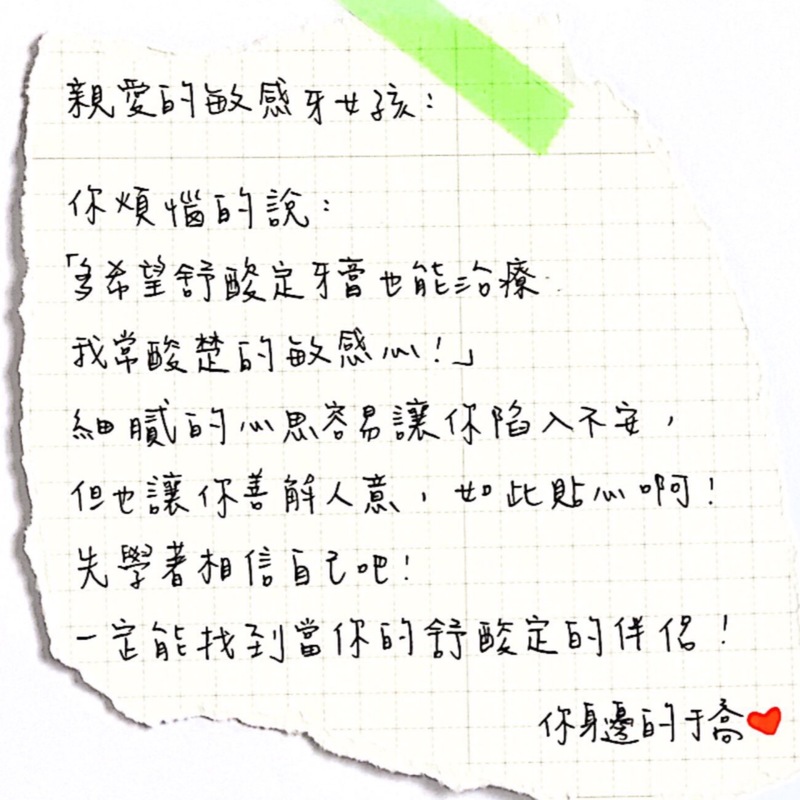 親愛的敏感牙女孩：
你煩惱的說：
「多希望舒酸定牙膏也能治療
我常酸楚的敏感心！」
細膩的心思容易讓你陷入不安，
但也讓你善解人意，如此貼心啊！
先學著相信自己吧！
一定能找到當你的舒酸定的伴侶！
你身邊的于喬